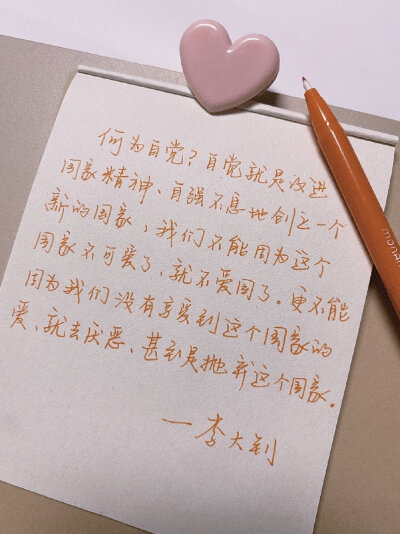 何为自觉？自觉就是改进
国家精神、自强不息地创立一个
新的国家，我们不能因为这个
国家不可爱了、就不爱国了。更不能
因为我们没有享受到这个国家的
爱、就去厌恶、甚到是抛弃这个国家。
一李大钊